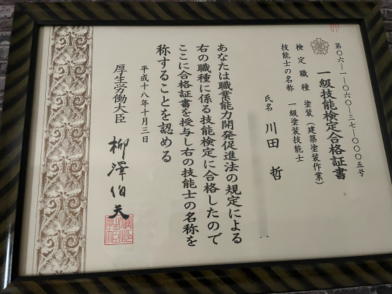 第〇六-一-〇六〇-三七-〇〇〇五号
一級技能検定合格証書
検定職種 塗装(建築塗装作業)
技能士の名称 一級塗装技能士
氏名 川田 哲
あなたは職業能力開発促進法の規定による
右の職種に係る技能検定に合格したので
ここに合格証書を授与し右の技能士の名称を
称することを認める
平成十八年十月三日
厚生労働大臣 柳澤伯夫